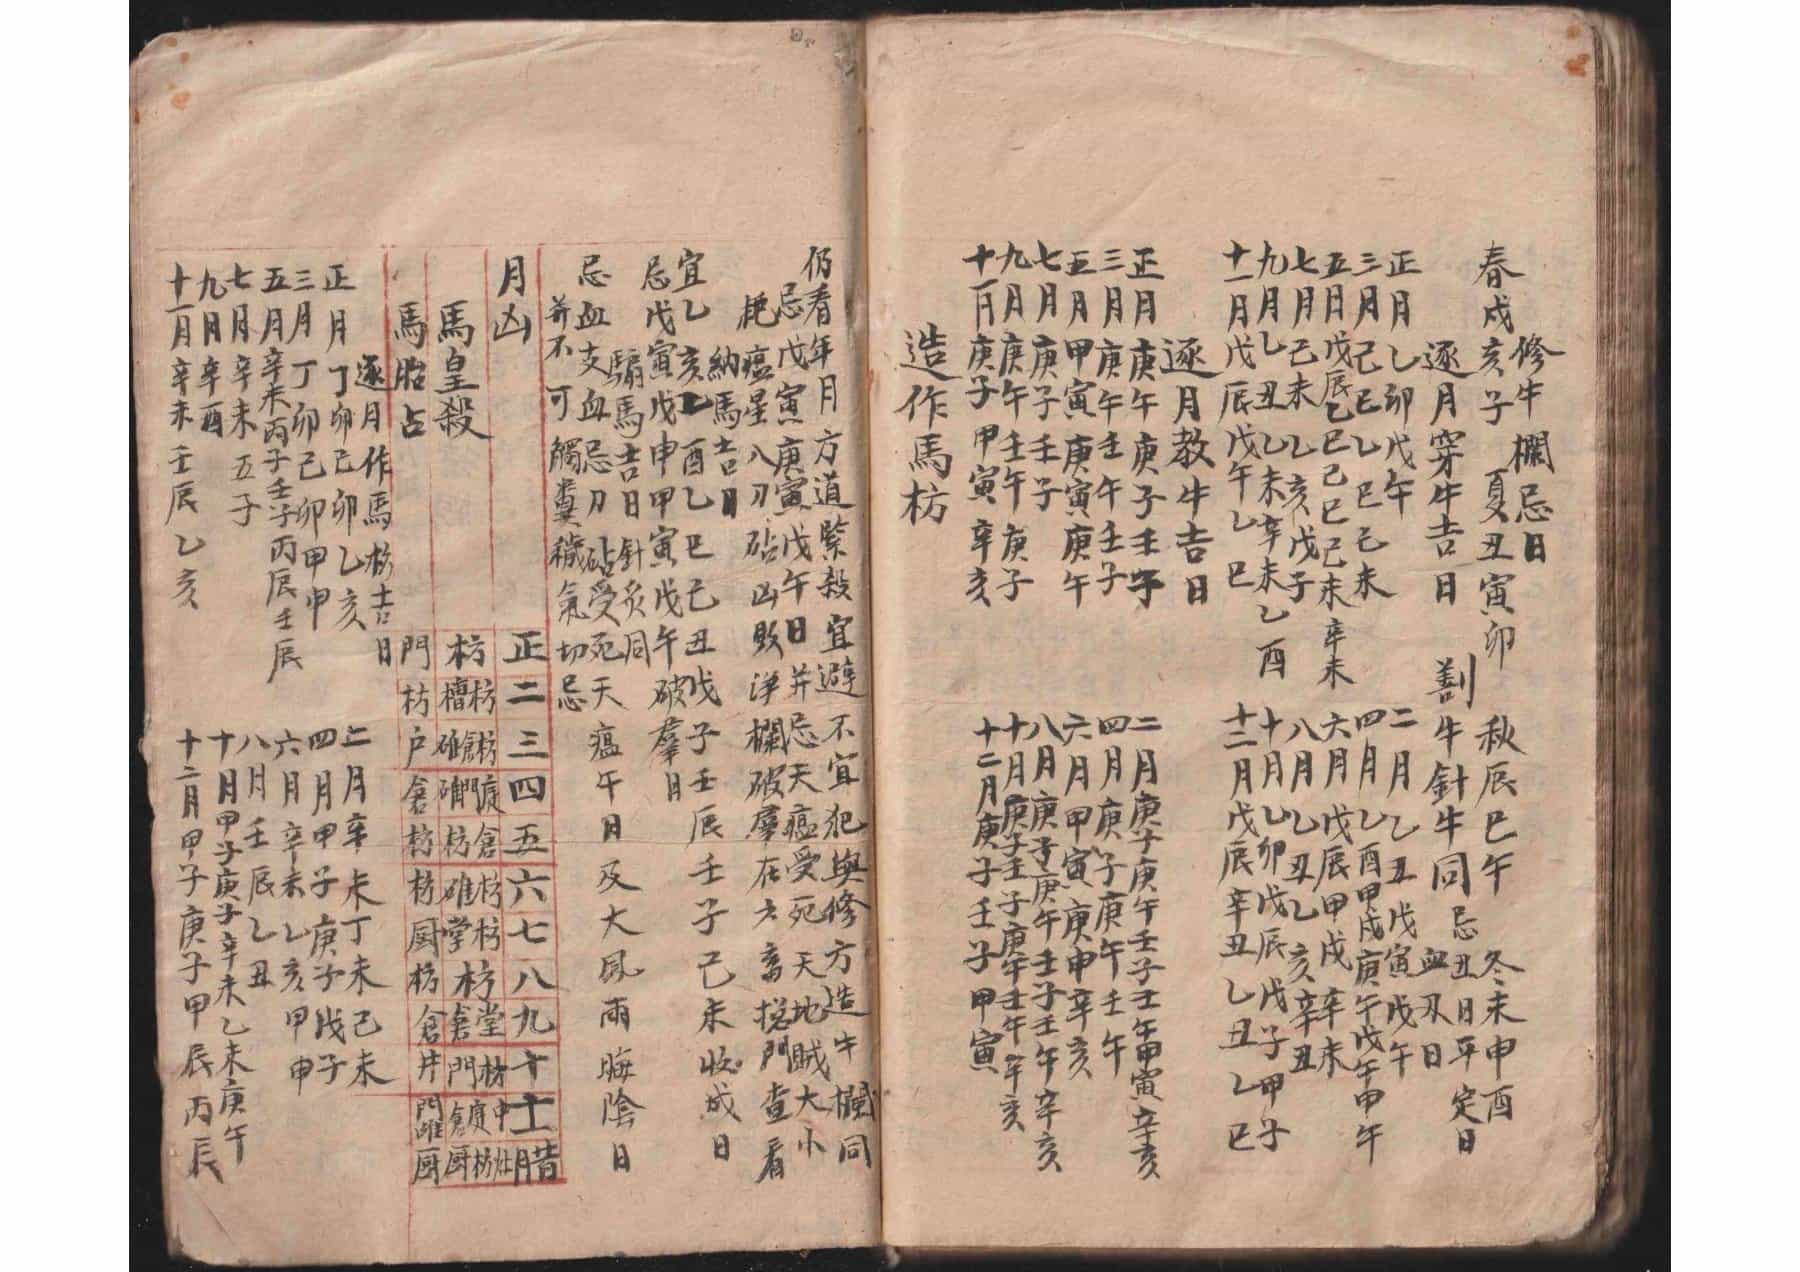 修牛欄忌日
春戌亥子 夏丑寅卯 秋辰巳午 冬未申酉
逐月穿牛吉日 劁牛針牛同 忌丑日平定日血刃日
正月乙卯戊午 二月乙丑戊寅戊午
三月己巳乙巳己未 四月乙酉甲戌庚午戊午甲午
五月戊辰乙巳己巳己未辛未 六月戊辰甲戌辛未
七月己未乙亥戊子 八月乙丑乙亥辛丑
九月乙丑乙未辛未乙酉 十月乙卯戊辰戊子甲子
十一月戊辰戊午乙巳 十二月戊辰辛丑乙丑乙巳
逐月教牛吉日
正月庚午庚子壬午 二月庚子庚午壬子壬午甲寅辛亥
三月庚午壬午壬子 四月庚子庚午壬午
五月甲寅庚寅庚午 六月甲寅庚申辛亥
七月庚子壬子 八月庚子庚午壬子壬午辛亥
九月庚午壬午庚子 十月庚子壬子庚午壬午辛亥
十一月庚子甲寅辛亥 十二月庚子壬子甲寅
造作馬枋
仍看年月方道緊殺宜避不宜犯與修方造牛欄同
忌戊寅庚寅戊午日并忌天瘟受死天地賊大小
耗瘟星八刀砧凶敗淨欄破羣在六畜𢰅門查看
納馬吉日
宜乙亥乙酉乙巳己丑戊子壬辰壬子己未收成日
忌戊寅戊申甲寅戊午破羣日
騸馬吉日針炙同
忌血支血忌刀砧受死天瘟午日及大風雨晦陰日
并不可觸糞穢氣切忌
月凶 正 二 三 四 五 六 七 八 九 十 十一 腊
馬皇殺 枋 枋槽 枋倉碓 門碓 倉枋 枋碓 枋堂 枋 堂倉 枋門 中庭倉 灶枋厨
馬胎占 門 枋 户 倉 枋 枋 厨 枋 倉 井 門碓 厨
逐月作馬枋吉日
正月丁卯己卯乙亥 二月辛未丁未己未
三月丁卯己卯甲申 四月甲子庚子戊子
五月辛未丙子壬子丙辰壬辰 六月辛未乙亥甲申
七月辛未五子 八月壬辰乙丑
九月辛酉 十月甲子庚子辛未乙未庚午
十一月辛未壬辰乙亥 十二月甲子庚子甲辰丙辰